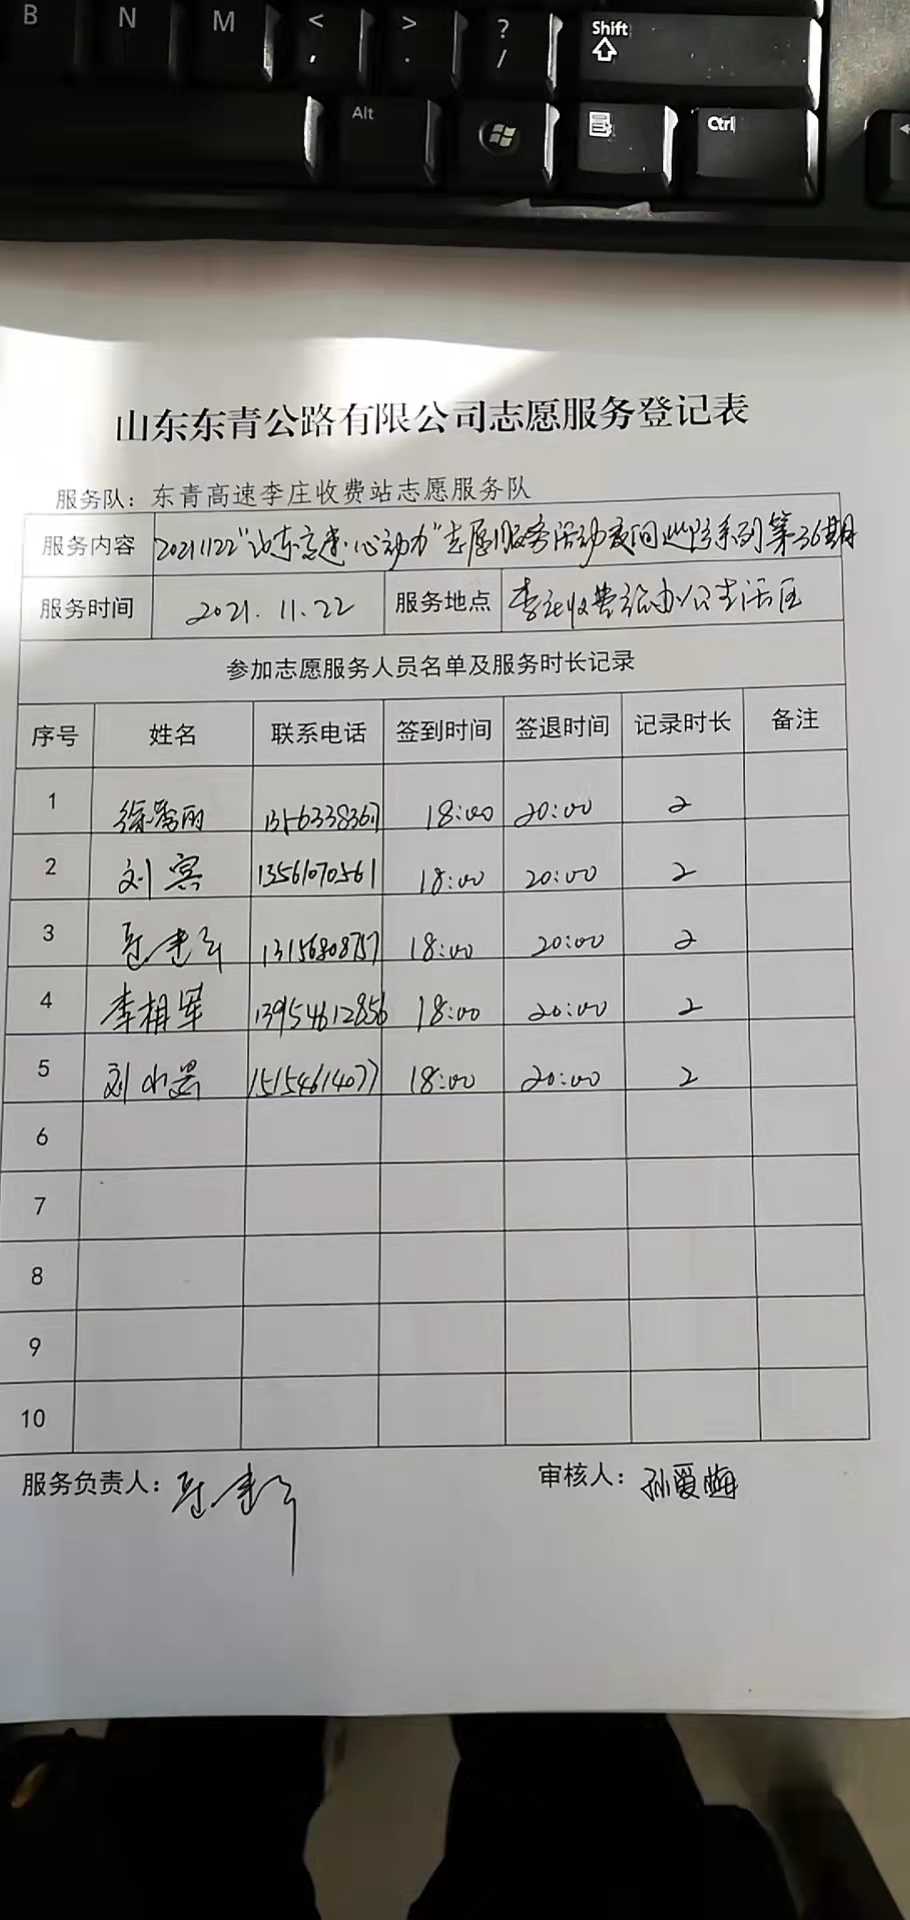 B N M < , > . ? / Shift
Alt Ctrl
山东东青公路有限公司志愿服务登记表
服务队：东青高速李庄收费站志愿服务队
服务内容 20211122“山东高速·心动力”志愿服务活动夜间巡逻系列第36期
服务时间 2021.11.22 服务地点 李庄收费站办公生活区
参加志愿服务人员名单及服务时长记录
序号 姓名 联系电话 签到时间 签退时间 记录时长 备注
1 徐秀丽 13156338367 18:00 20:00 2
2 刘宾 13561070561 18:00 20:00 2
3 13156808757 18:00 20:00 2
4 李相军 13954612856 18:00 20:00 2
5 刘小 15154614077 18:00 20:00 2
6
7
8
9
10
服务负责人： 审核人：孙爱梅